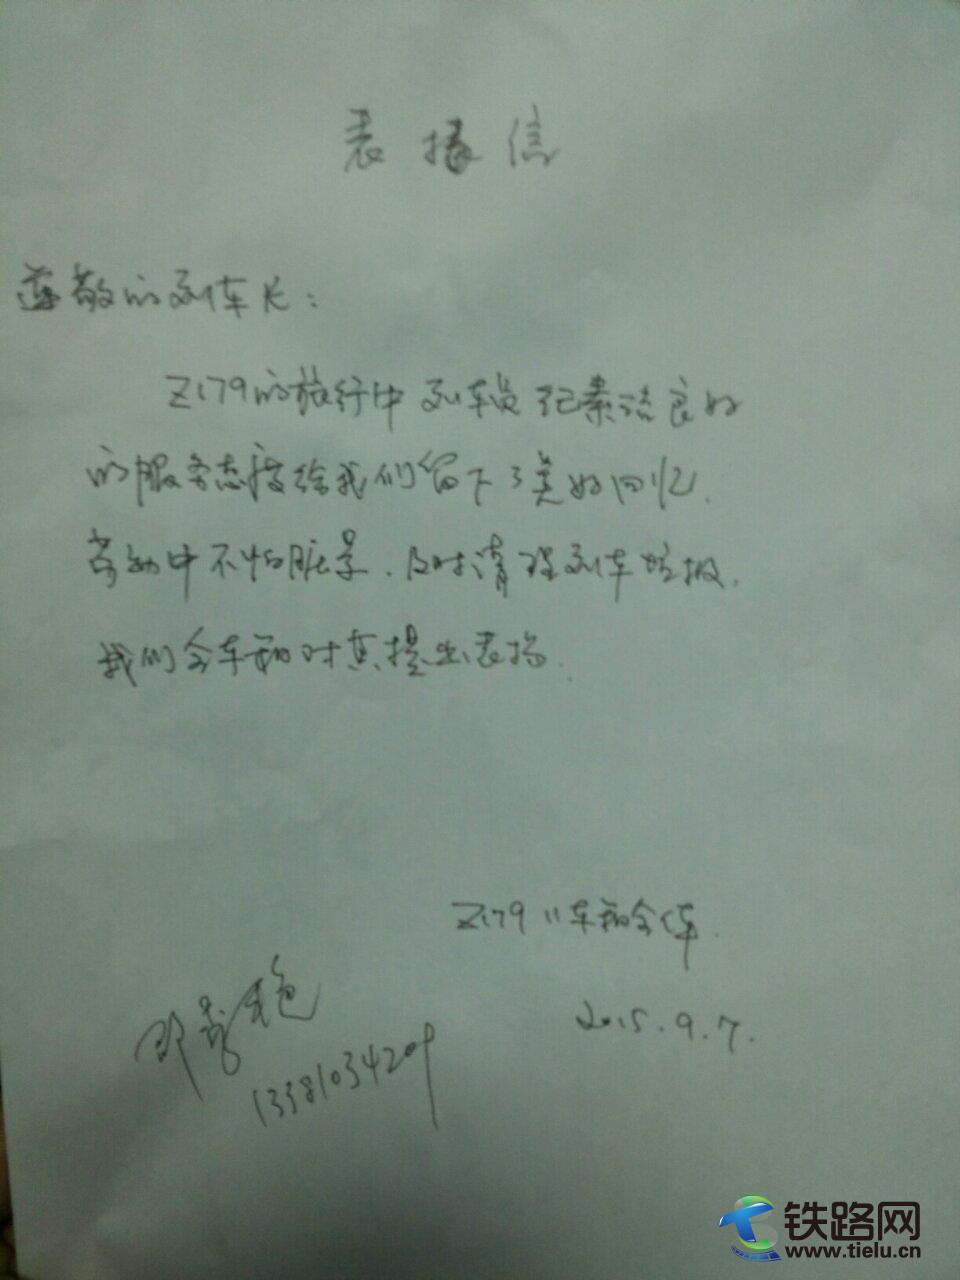 表扬信
尊敬的列车长:
Z179的旅行中列车员纪素洁良好
的服务态度给我们留下了美好回忆.
劳动中不怕脏累.及时清理列车垃圾.
我们全车厢对其提出表扬.
Z179 11车厢全体.
2015.9.7.
邓秀艳
133810342
铁路网
www.tielu.cn